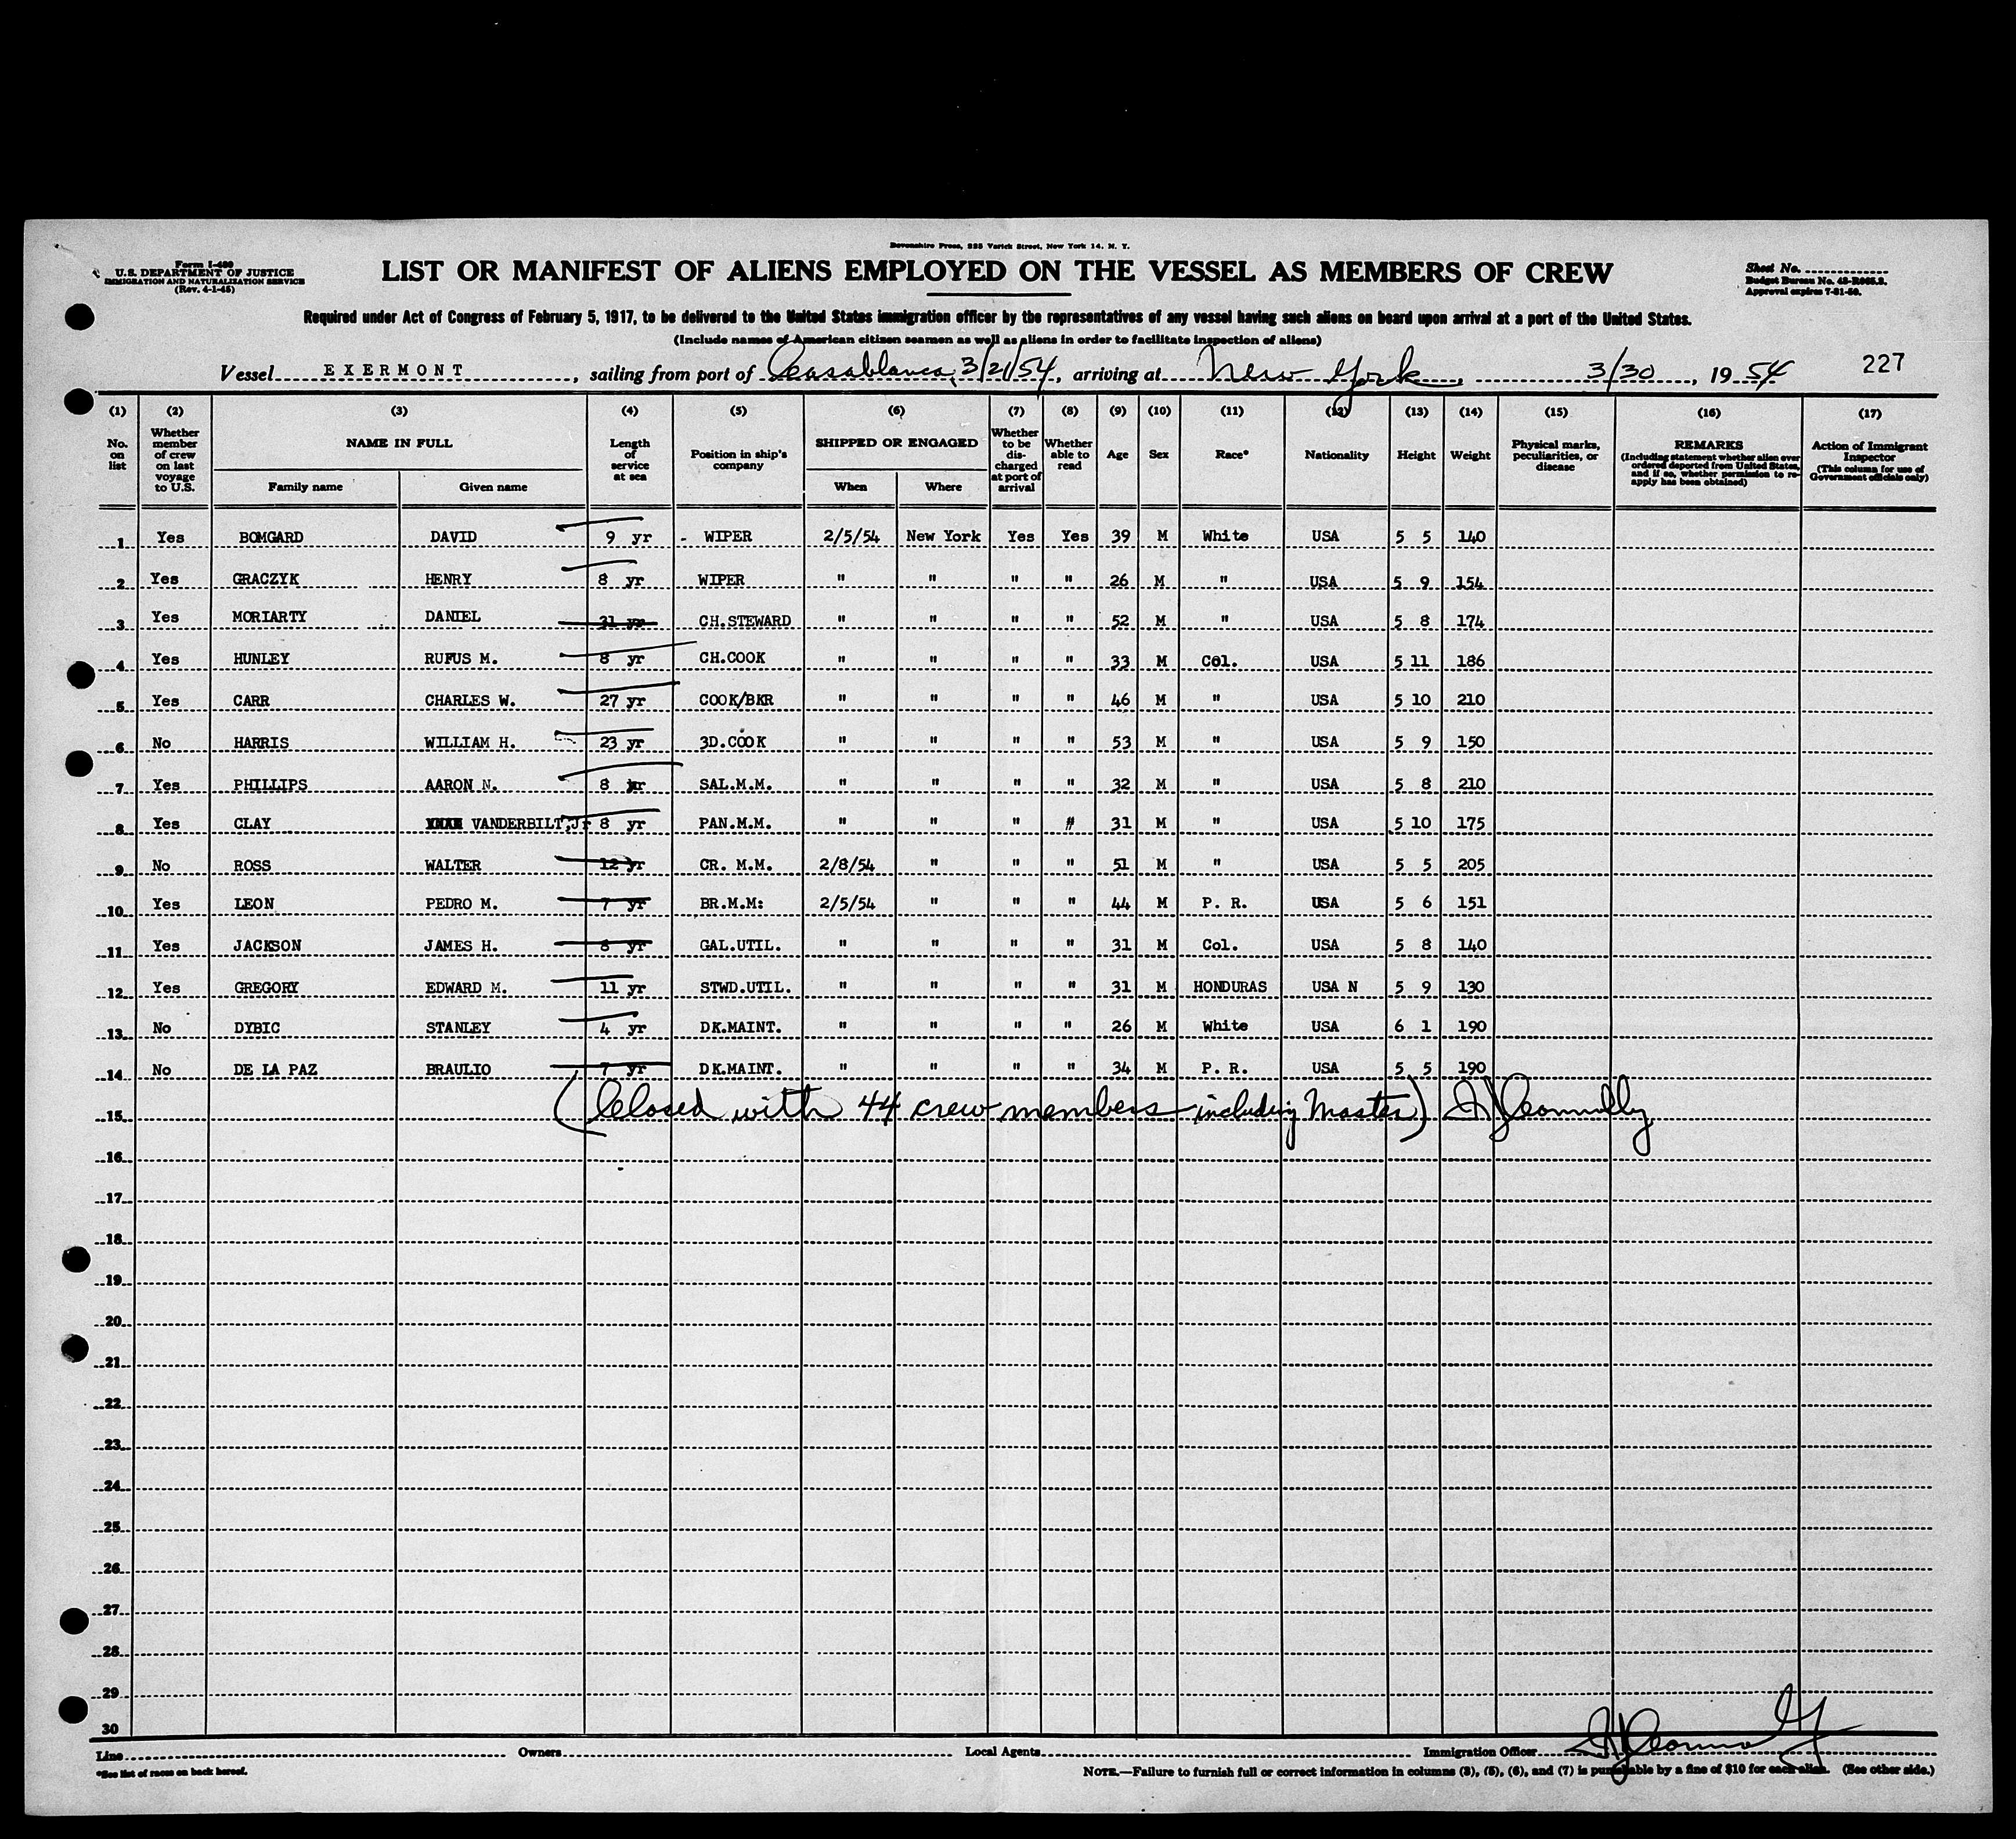 Devonshire Press, 225 Varick Street, New York 14, N. Y.
Form I-480
U.S. DEPARTMENT OF JUSTICE
IMMIGRATION AND NATURALIZATION SERVICE
(Rev. 4-1-45)
LIST OR MANIFEST OF ALIENS EMPLOYED ON THE VESSEL AS MEMBERS OF CREW
Sheet No.
Budget Bureau No. 43-R065.3.
Approval expires 7-31-50.
Required under Act of Congress of February 5, 1917, to be delivered to the United States immigration officer by the representatives of any vessel having such aliens on board upon arrival at a port of the United States.
(Include names of American citizen seamen as well as aliens in order to facilitate inspection of aliens)
Vessel EXERMONT, sailing from port of Casablanca, 3/21/54, arriving at New York, 3/30, 1954 227
(1) (2) (3) (4) (5) (6) (7) (8) (9) (10) (11) (12) (13) (14) (15) (16) (17)
No. on list Whether member of crew on last voyage to U.S. NAME IN FULL Family name Given name Length of service at sea Position in ship's company SHIPPED OR ENGAGED When Where Whether to be discharged at port of arrival Whether able to read Age Sex Race* Nationality Height Weight Physical marks, peculiarities, or disease REMARKS (Including statement whether alien ever ordered deported from United States, and if so, whether permission to re-apply has been obtained) Action of Immigrant Inspector (This column for use of Government officials only)
1 Yes BOMGARD DAVID 9 yr - WIPER 2/5/54 New York Yes Yes 39 M White USA 5 5 140
2 Yes GRACZYK HENRY 8 yr WIPER " " " " 26 M " USA 5 9 154
3 Yes MORIARTY DANIEL 31 yr CH.STEWARD " " " " 52 M " USA 5 8 174
4 Yes HUNLEY RUFUS M. 8 yr CH.COOK " " " " 33 M Col. USA 5 11 186
5 Yes CARR CHARLES W. 27 yr COOK/BKR " " " " 46 M " USA 5 10 210
6 No HARRIS WILLIAM H. 23 yr 3D.COOK " " " " 53 M " USA 5 9 150
7 Yes PHILLIPS AARON N. 8 yr SAL.M.M. " " " " 32 M " USA 5 8 210
8 Yes CLAY VANDERBILT,Jr 8 yr PAN.M.M. " " " # 31 M " USA 5 10 175
9 No ROSS WALTER 12 yr CR. M.M. 2/8/54 " " " 51 M " USA 5 5 205
10 Yes LEON PEDRO M. 7 yr BR.M.M: 2/5/54 " " " 44 M P. R. USA 5 6 151
11 Yes JACKSON JAMES H. 8 yr GAL.UTIL. " " " " 31 M Col. USA 5 8 140
12 Yes GREGORY EDWARD M. 11 yr STWD.UTIL. " " " " 31 M HONDURAS USA N 5 9 130
13 No DYBIC STANLEY 4 yr DK.MAINT. " " " " 26 M White USA 6 1 190
14 No DE LA PAZ BRAULIO 7 yr DK.MAINT. " " " " 34 M P. R. USA 5 5 190
15 (Closed with 44 crew members including Master) Connolly
16
17
18
19
20
21
22
23
24
25
26
27
28
29
30
Line Owners Local Agents Immigration Officer
*See list of races on back hereof.
NOTE.—Failure to furnish full or correct information in columns (3), (5), (6), and (7) is punishable by a fine of $10 for each alien. (See other side.)